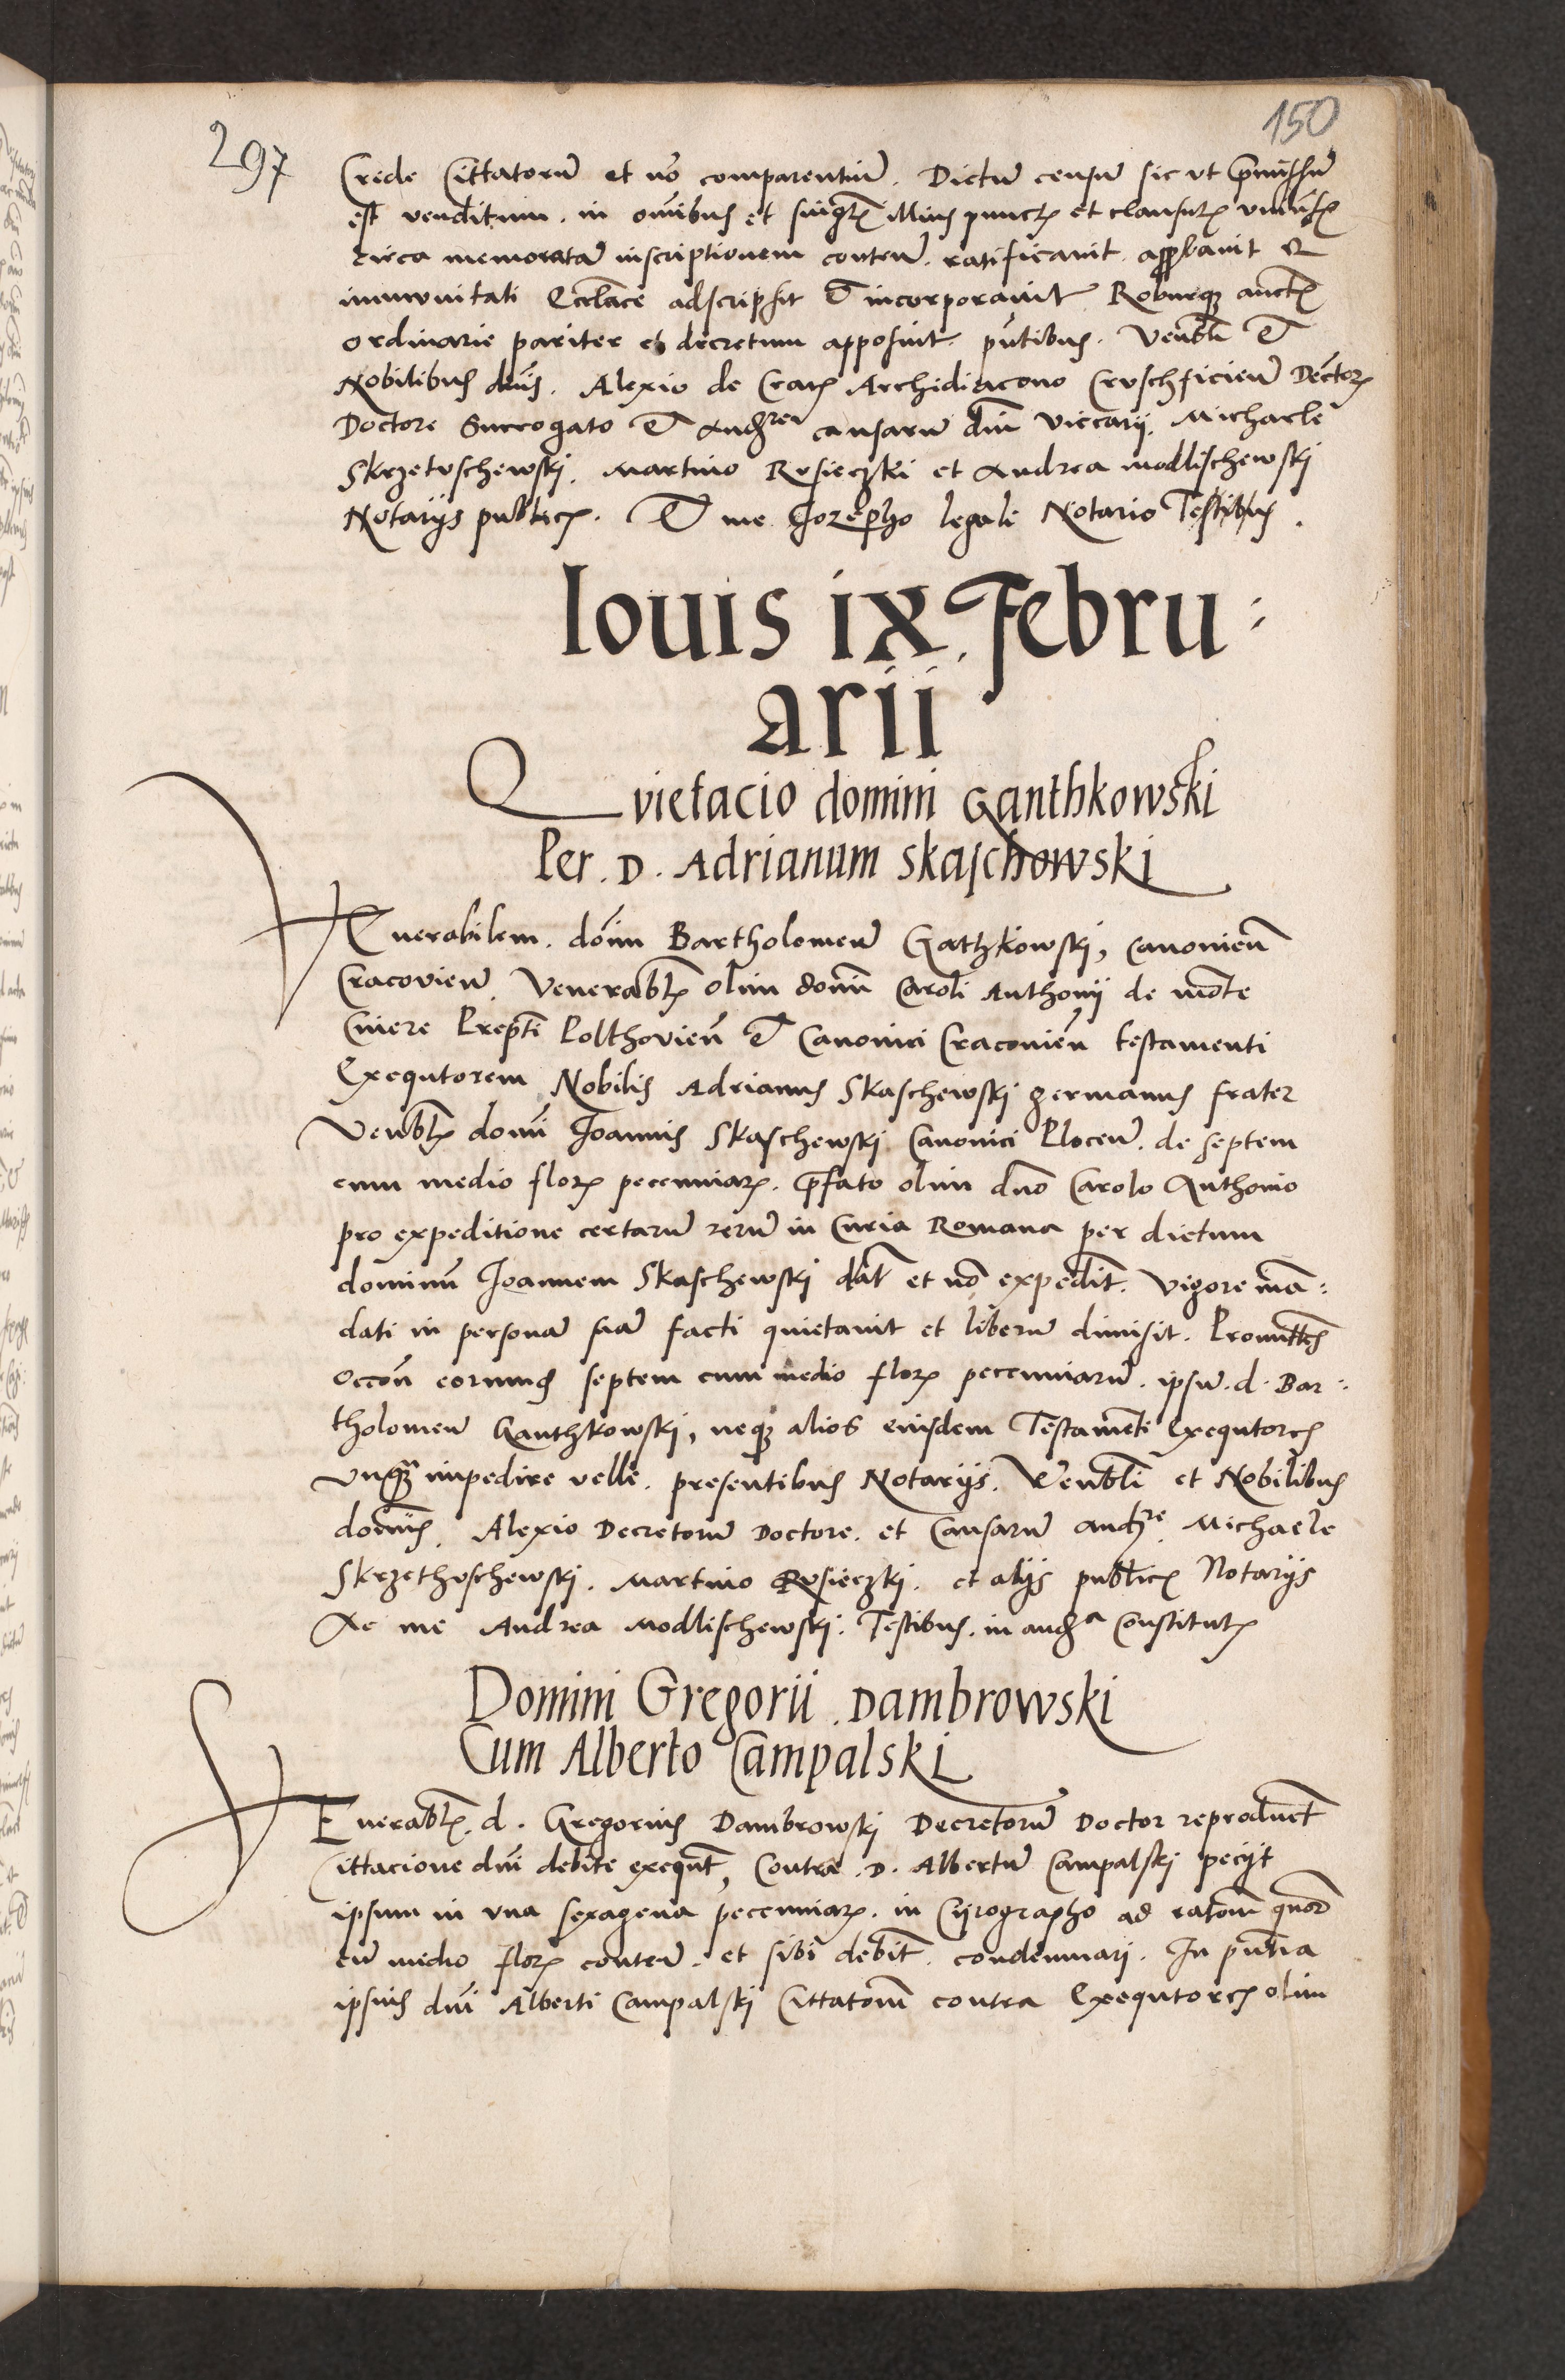 150
297
Crede Cittatorũ et nõ comparentiũ. Dictũ censũ sic ut p̃missũ
est venditum. in om̃ibus et singꝉꝫ illius punctꝫ et clausulꝫ
circa memoratã inscriptionem conten̄. ratificauit. approbauit et
immunitati Eccl̃ace adscripsit Et incorporauit Roburqꝫ
ordinarie pariter et decretum apposuit. pñtibus. Venbłi Et
Nobilibus dñis. Alexio de Archidiacono Decꝉtorꝫ
Doctore Surrogato Et Audꝫre causarũ dñi Viccarij. Michaele
Skrzetuschewski. Martino Rusieczki et Andrea Modlischewski
Notarijs publicꝫ. Et me Jozepho legali Notario Testibus.
Iouis ix. Febru:
arii
Qvietacio domini Ganthkowski
Per. D. Adrianum Skaschowski
VEnerabilem. dom̃ Bartholomeũ Gathkowski, Canonicũ
Cracovieñ. Venerabłꝫ olim dom̃ Caroli Anthonij de mõte
Cinere Prep̃ti Polthovieñ Et Canonici Cracouieñ testamenti
Exequtorem Nobilis Adrianus Skaschewski germanus frater
Venbłꝫ domĩ Joannis Skaschewski Canonici Ploceñ. de septem
cum medio florꝫ peccuniarꝫ. p̃fato olim dño Carolo Anthonio
pro expeditione certarũ rerũ in Curia Romana per dictum
dominũ Joannem Skaschewski dat̃ et nõ expedit̃. Vigore mã:
dati in personã suã facti quietauit et liberũ dimisit. Promittẽs
occõñ eorumd septem cum medio florꝫ peccuniarũ. ipsũ. d. Bar:
tholomeũ Ganthkowski, neqꝫ alios eiusdem Testamẽti Exequtores
unq̃ꝫ impedire velle. presentibus Notarijs. Venbłi et Nobilibus
domĩs. Alexio Decretorũ Doctore. et Causarũ Audꝫre. Michaele
Skrzethuschewski. Martino Rusieczki. et alijs publicꝫ Notarijs
Ac me Andrea Modlischewski. Testibus. in audꝫa Constitutꝫ
Domini Gregorii. Dambrowski
Cum Alberto Campalski
VEnerabłꝫ. d. Gregorius Dambrowski Decretorũ Doctor reproduct̃
Cittacione dñi debite exequt̃, Contra. D. Albertũ Campalski pecijt
ipsum in vna sexagena peccuniarꝫ. in Cijrographo ad ratom̃ quor̃
cũ medio florꝫ conten̄. et sibi debit̃. condemnari. In pñtia
ipsius dñi Alberti Campalski Cittatom̃ contra Exequtores olim